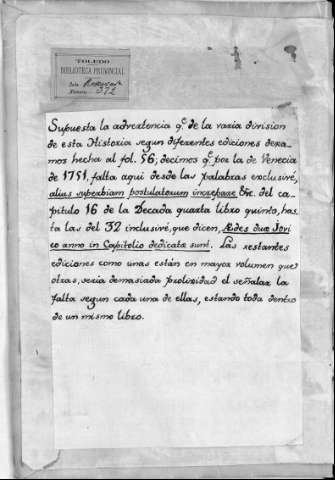 TOLEDO
BIBLIOTECA PROVINCIAL
Sala
Número 372
Supuesta la advertencia q.e de la varia division
de esta Historia segun diferentes ediciones dexa-
mos hecha al fol. 56; decimos q.e por la de Venecia
de 1751, falta aqui desde las palabras exclusivè,
alias superbiam postulatorum increpare &c. del ca-
pitulo 16 de la Decada quarta libro quinto, has-
ta las del 32 inclusivè, que dicen, Ædes duæ Jovi
eo anno in Capitolio dedicatæ sunt. Las restantes
ediciones como unas están en mayor volumen que
otras, seria demasiada prolixidad el señalar la
falta segun cada una de ellas, estando toda dentro
de un mismo libro.